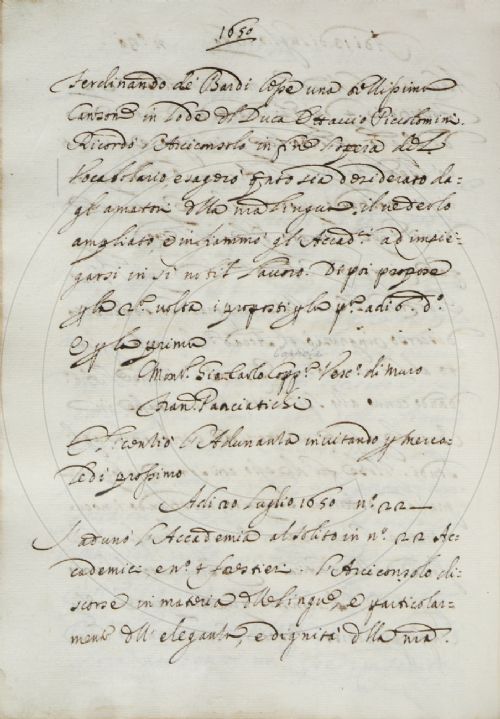 1650
Ferdinando de' Bardi lesse una bellissima
Canzone in lode del Duca Ottavio Piccolomini.
Ricordò l'Arciconsolo in fine l'opera del
Vocabolario esagerò q.to sia desiderato da-
gl'amatori della n̄ra lingua il vederlo
ampliato e infiammò gl'Accad.i ad impie-
garsi in sì nobil lavoro. Di poi propose
p la 2.a volta i proposti p la p.a adi 6. d.o
E p la prima
Mons.r Gia: Carlo Copp.a Vesc.o di Muro
Fran.o Panciatichi
E licentiò l'Adunanza invitando p merco-
ledì prossimo
Adi 20 Luglio 1650 n.o 22
S'adunò l'Accademia al solito in n.o 22 Ac-
cademici e n.o 4 forestieri. l'Arciconsolo di-
scorse in materia di lingue, e particolar-
mente dell'eleganza, e dignità della n̄ra